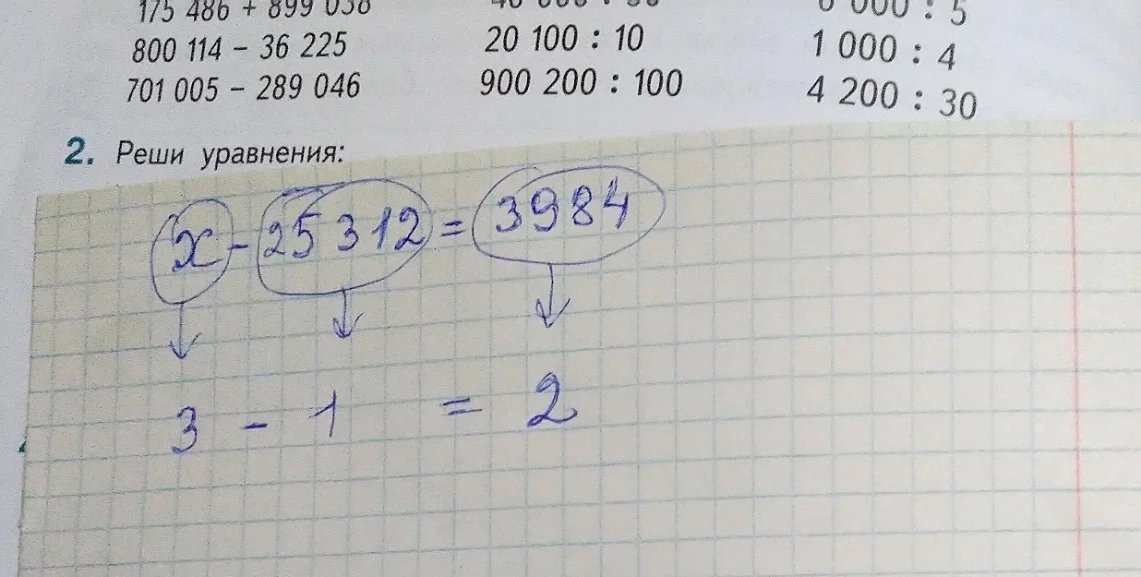 175 486 + 899 038
800 114 – 36 225
701 005 – 289 046
20 100 : 10
900 200 : 100
000 : 5
1 000 : 4
4 200 : 30
2. Реши уравнения:
x - 25 312 = 3984
3 - 1 = 2